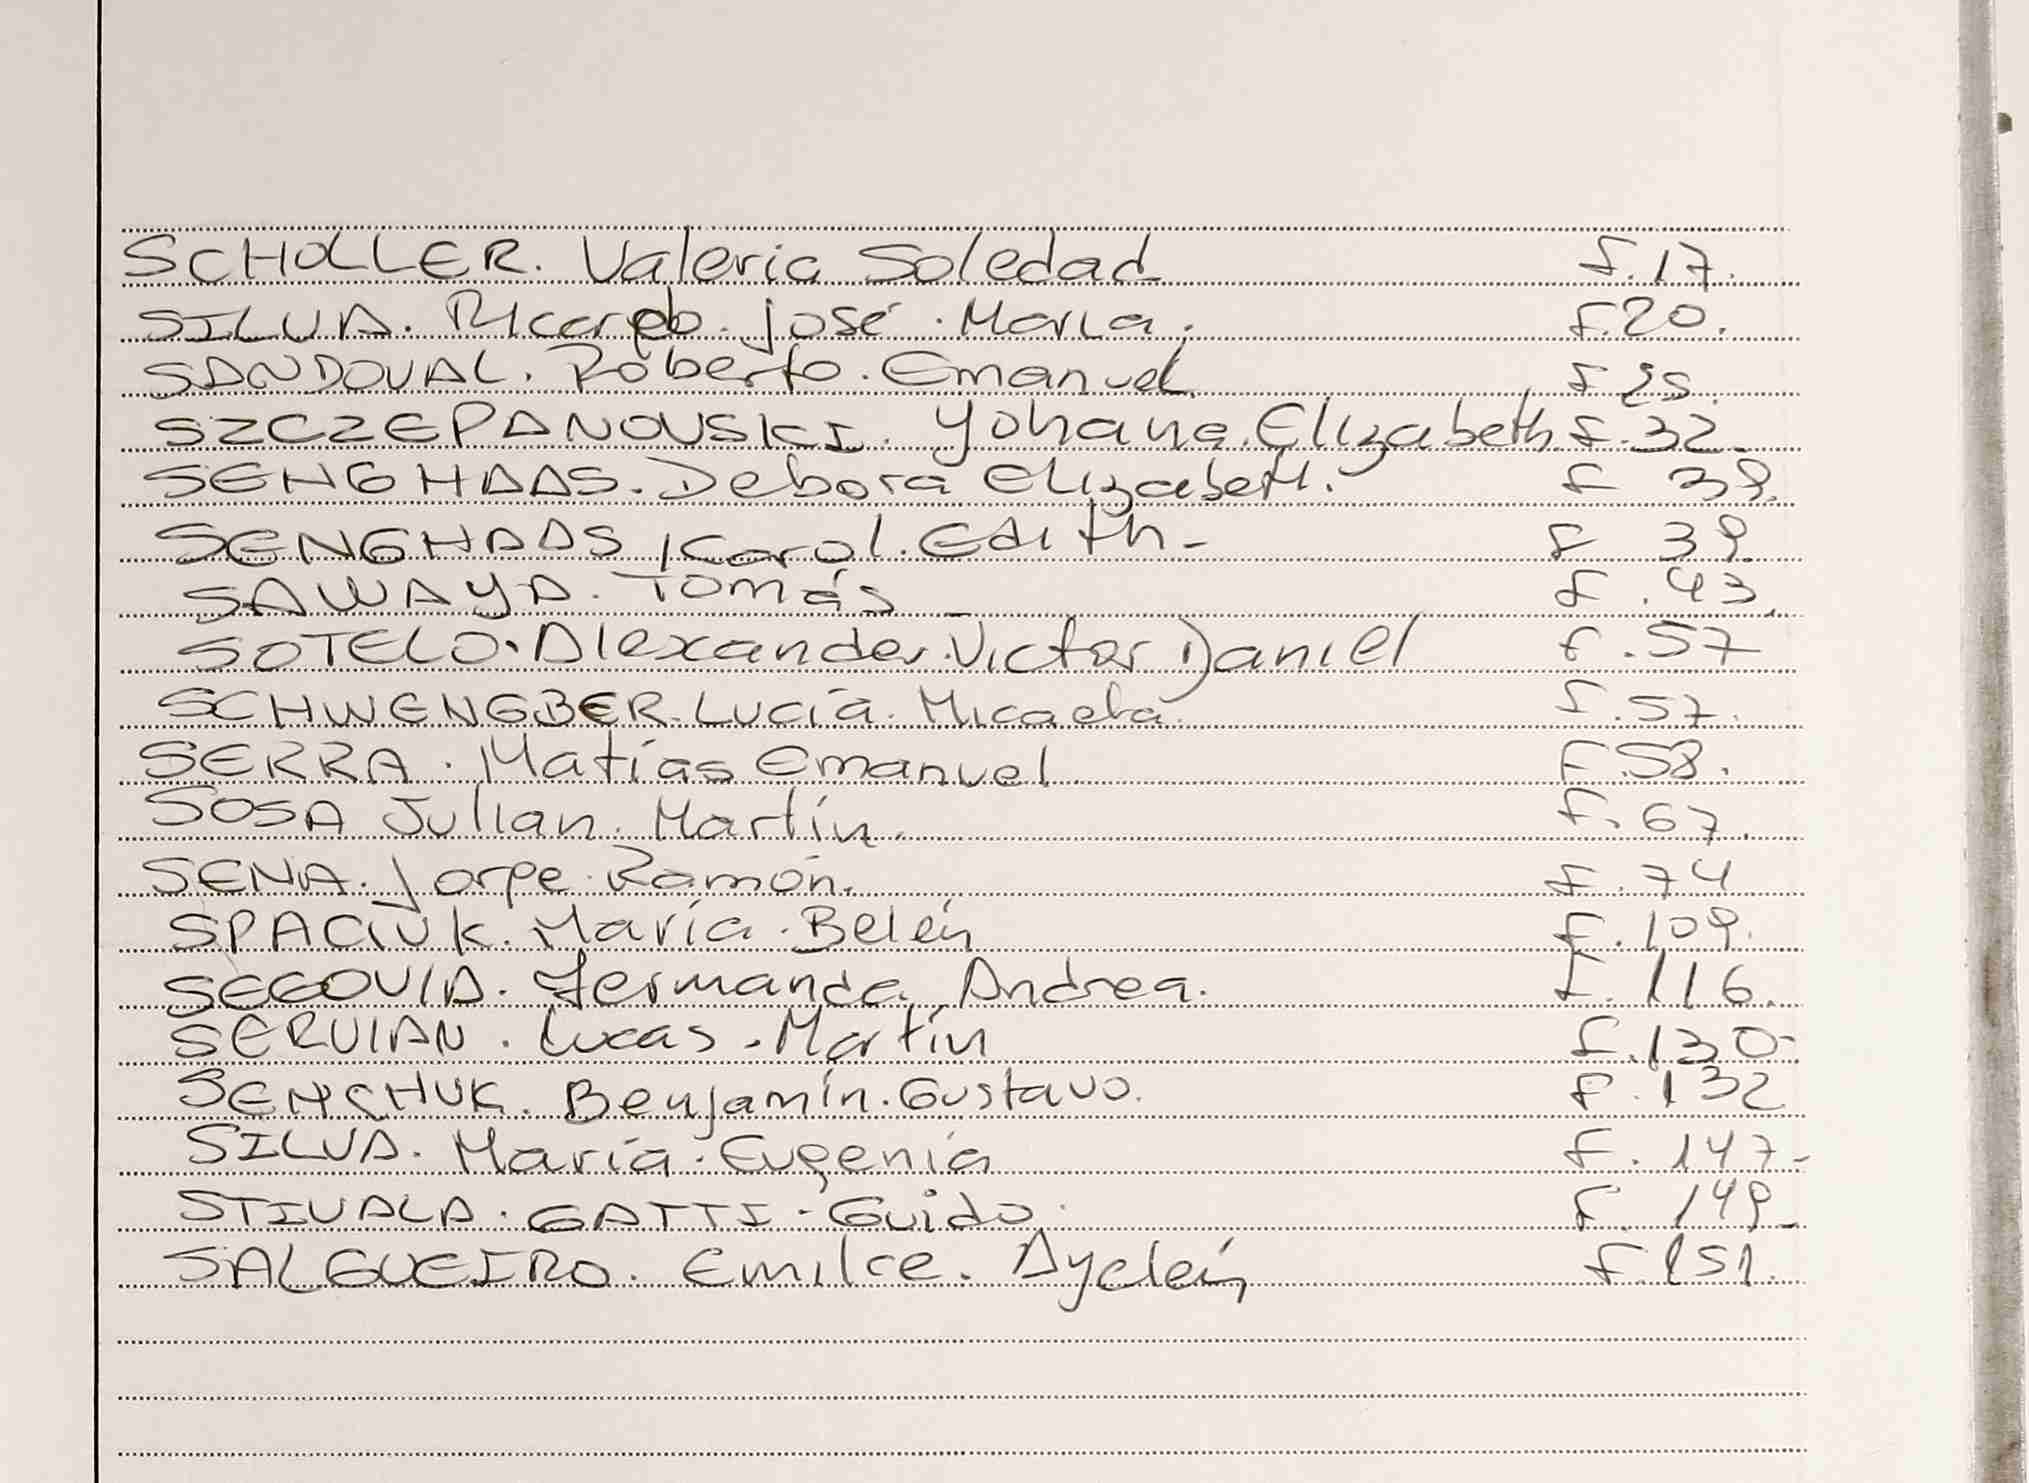 SCHOLLER. Valeria Soledad f.17.
SILVA. Ricardo. José. María. f.20.
SANDOVAL. Roberto. Emanuel f 25.
SZCZEPANOVSKI. Yohana. Elizabeth. f.32.
SENGHAAS. Debora Elizabeth. f 39.
SENGHAAS, Karol. Edith- f 39.
SAWAYA. Tomás f.43.
SOTELO. Alexander. Victor Daniel f.57
SCHWENGBER. Lucía. Micaela. f.57.
SERRA. Matías Emanuel F.58.
SOSA Julian. Martín. f.67.
SENA. Jorge. Ramón. f.74
SPACIUK. María. Belén f.109.
SEGOVIA. Andrea. f.116.
SERVIAN. Lucas. Martín f.130-
SENCHUK. Benjamín. Gustavo. f.132
SILVA. María. Eugenia f.147-
STIVALA. GATTI. Guido. f.149-
SALGUEIRO. Emilce. Ayelén f.151.